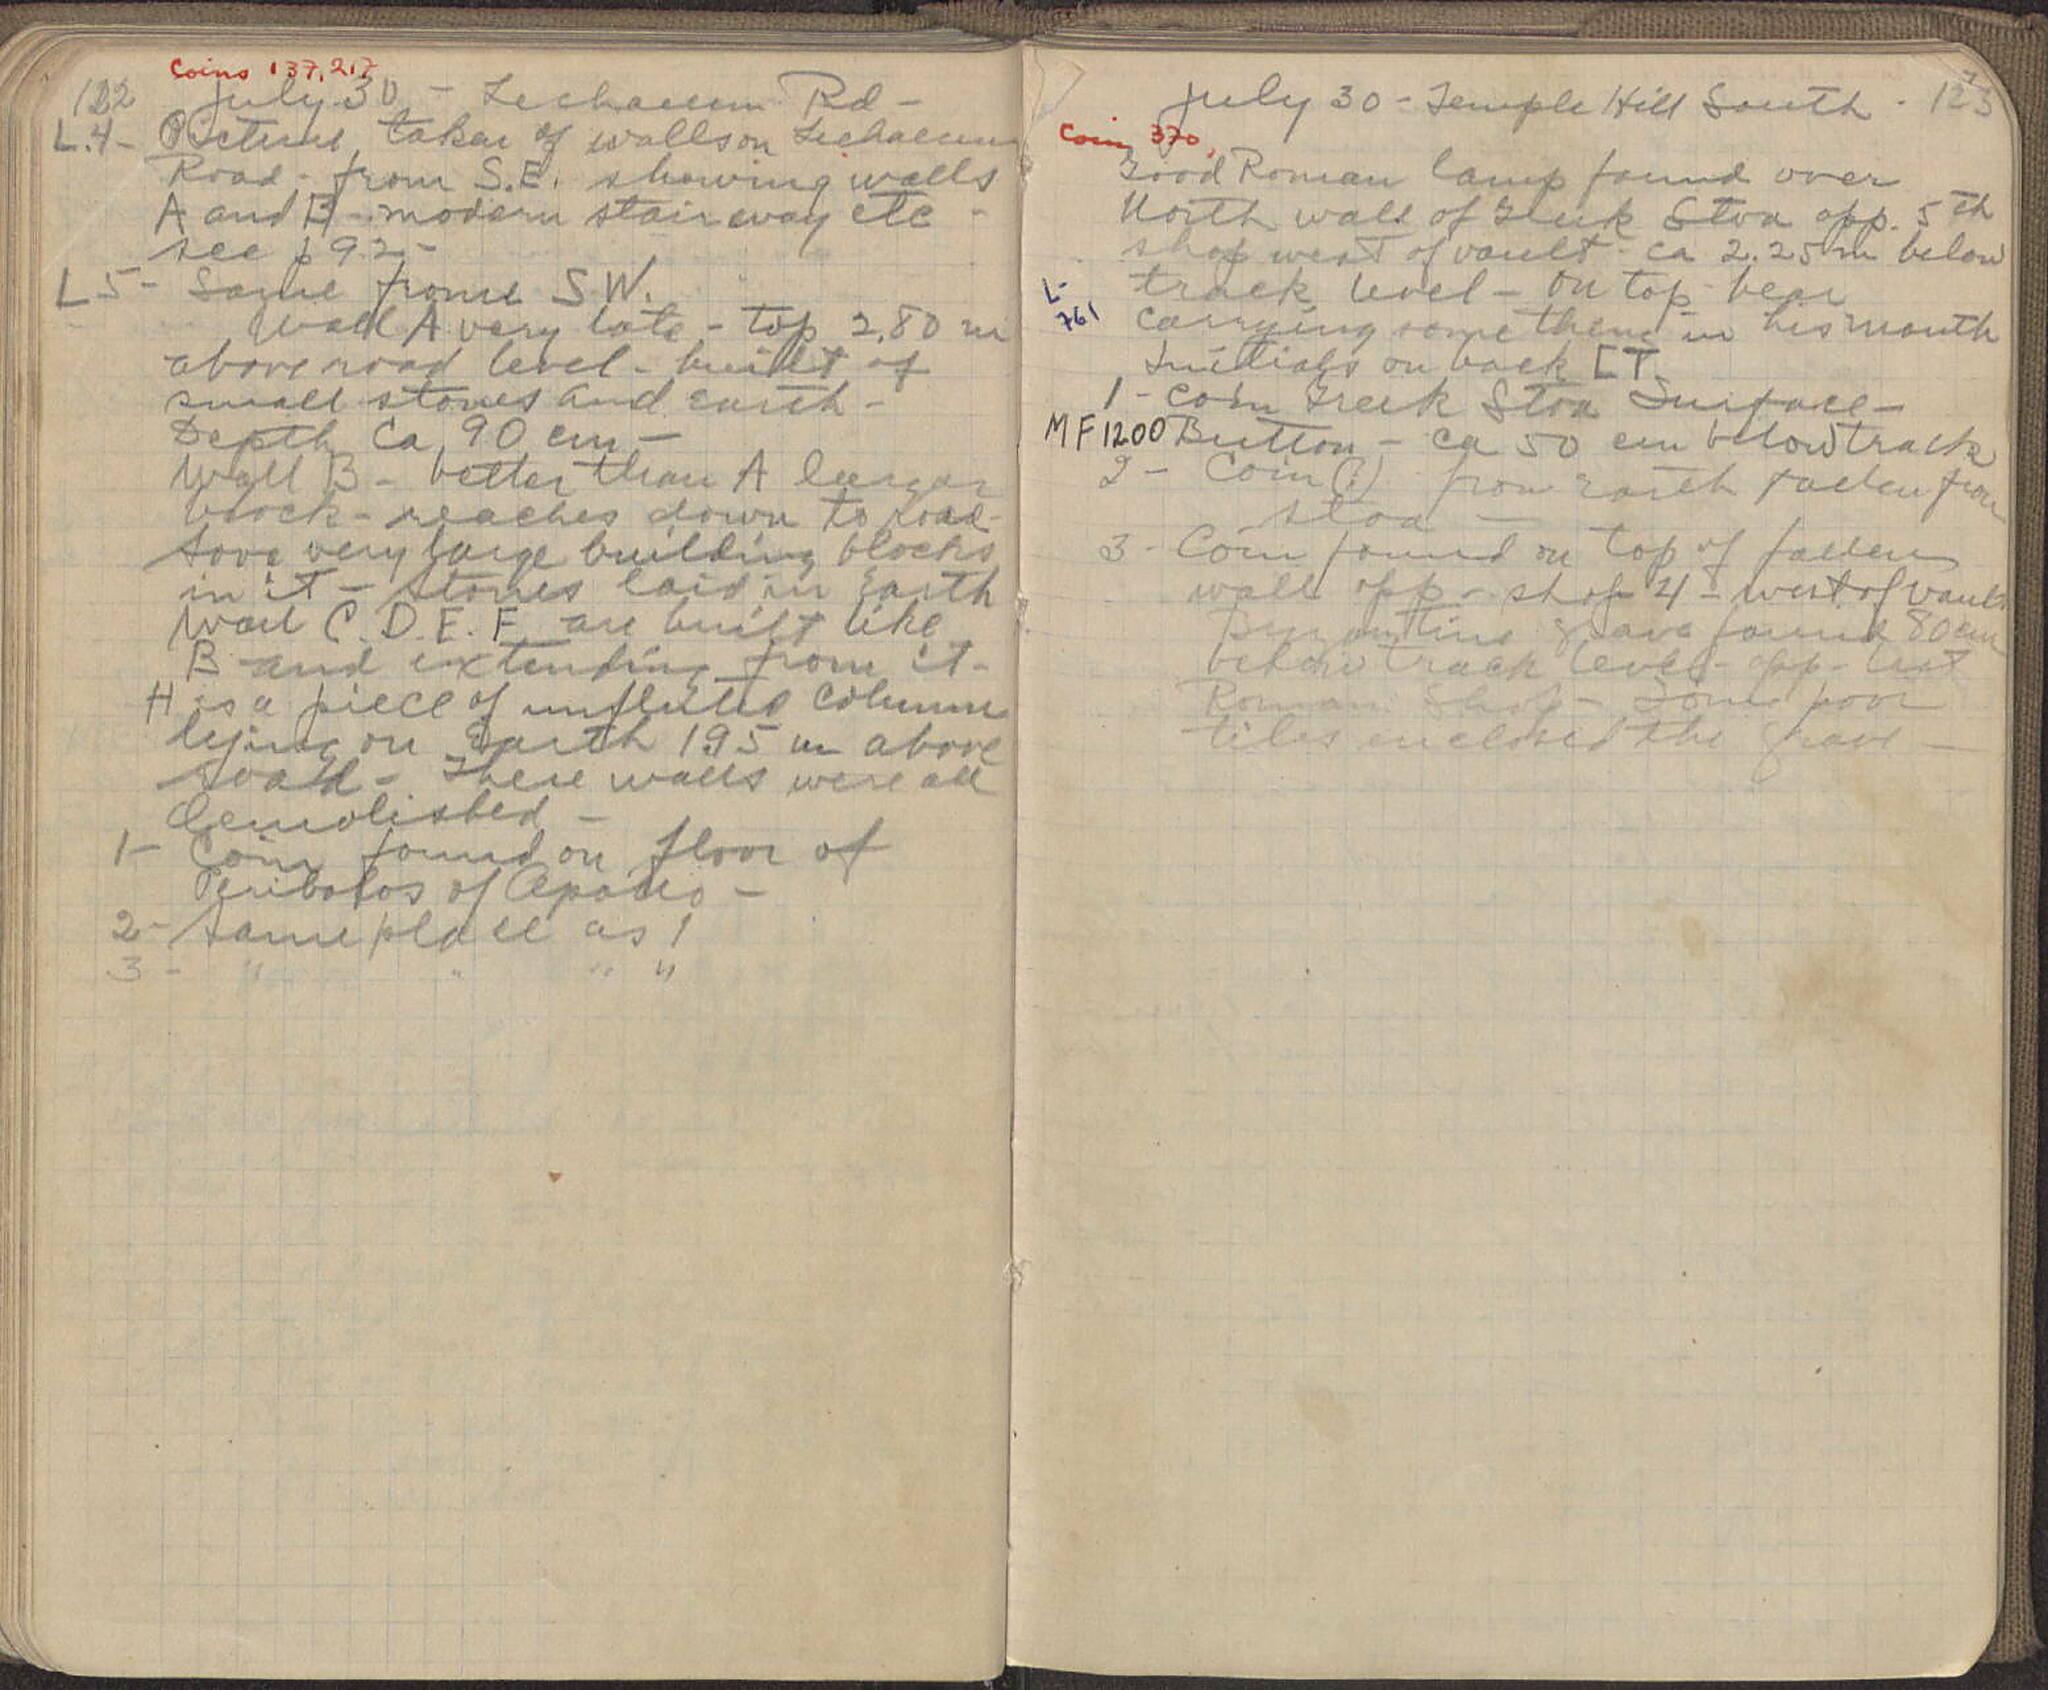 Coins 137, 217
122 July 30 - Lechaeum Rd -
L.4- Picture taken of walls on Lechaeum
Road - from S.E. showing walls
A and B - modern stairway etc -
see p 92 -
L 5- Same from S.W.
Wall A very late - top 2,80 m
above road level - built of
small stones and earth -
Depth ca 90 cm -
Wall B - better than A larger
block - reaches down to road -
some very large building blocks
in it - stones laid in earth
Wall C. D. E. F. are built like
B and extending from it -
H is a piece of unfluted column
lying on earth 1.95 m above
road - These walls were all
demolished -
1- Coin found on floor of
Peribolos of Apollo -
2- Same place as 1
3 - " " " "
July 30 - Temple Hill South - 123
Coin 370,
Good Roman lamp found over
North wall of Greek Stoa opp. 5th
shop west of vault - ca 2.25 m below
L-761
track level - On top bear
carrying something in his mouth
Initials on back CT
1 - coin Greek Stoa Surface -
MF1200 Button - ca 50 cm below track
2 - Coin (?) from earth fallen from
stoa -
3 - Coin found on top of fallen
wall opp - shop 4 - west of vault
Byzantine grave found 80 cm
below track level - opp - last
Roman Shop - Some poor
tiles enclosed the grave -